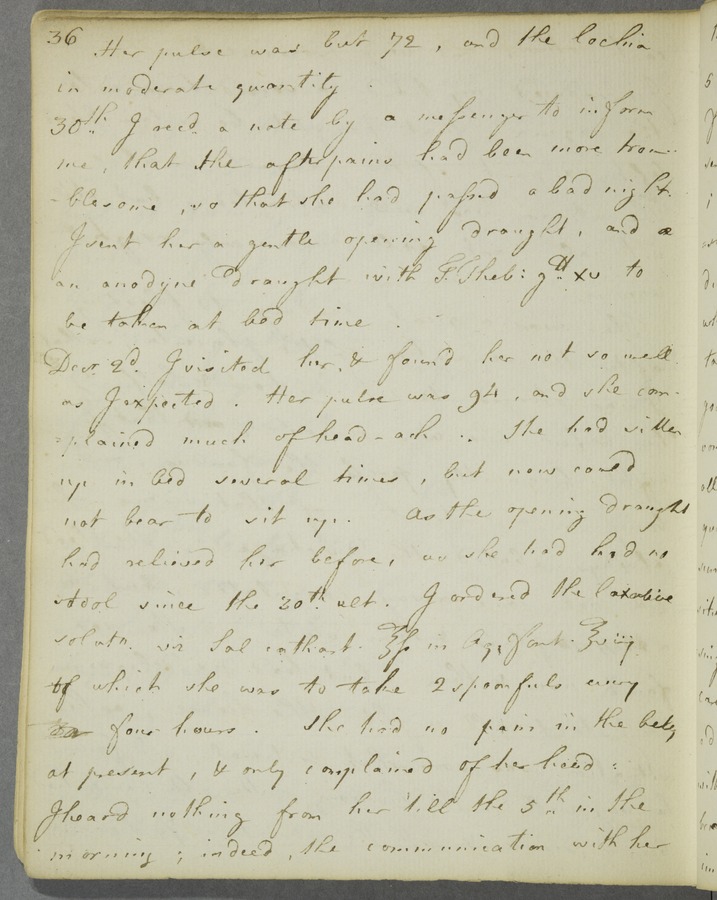 36
Her pulse was but 72, and the lochia
in moderate quantity.
30th I recd a note by a messenger to inform
me, that the afterpains had been more trou-
-blesome, so that she had passed a bad night.
I sent her a gentle opening draught, and a
an anodyne draught with T. Theb: gtt xv to
be taken at bed time.
Decr 2d. I visited her, & found her not so well
as I expected. Her pulse was 94, and she com-
-plained much of head-ach. She had sitten
up in bed several times, but now could
not bear to sit up. As the opening draught
had relieved her before, as she had had no
stool since the 30th ult. I ordered the laxative
solutn. viz Sal cathart. ℥ss in Aq. font. ℥viij
of which she was to take 2 spoonfuls every
four hours. She had no pain in the belly
at present, & only complained of her head:
I heard nothing from her till the 5th in the
morning; indeed, the communication with her